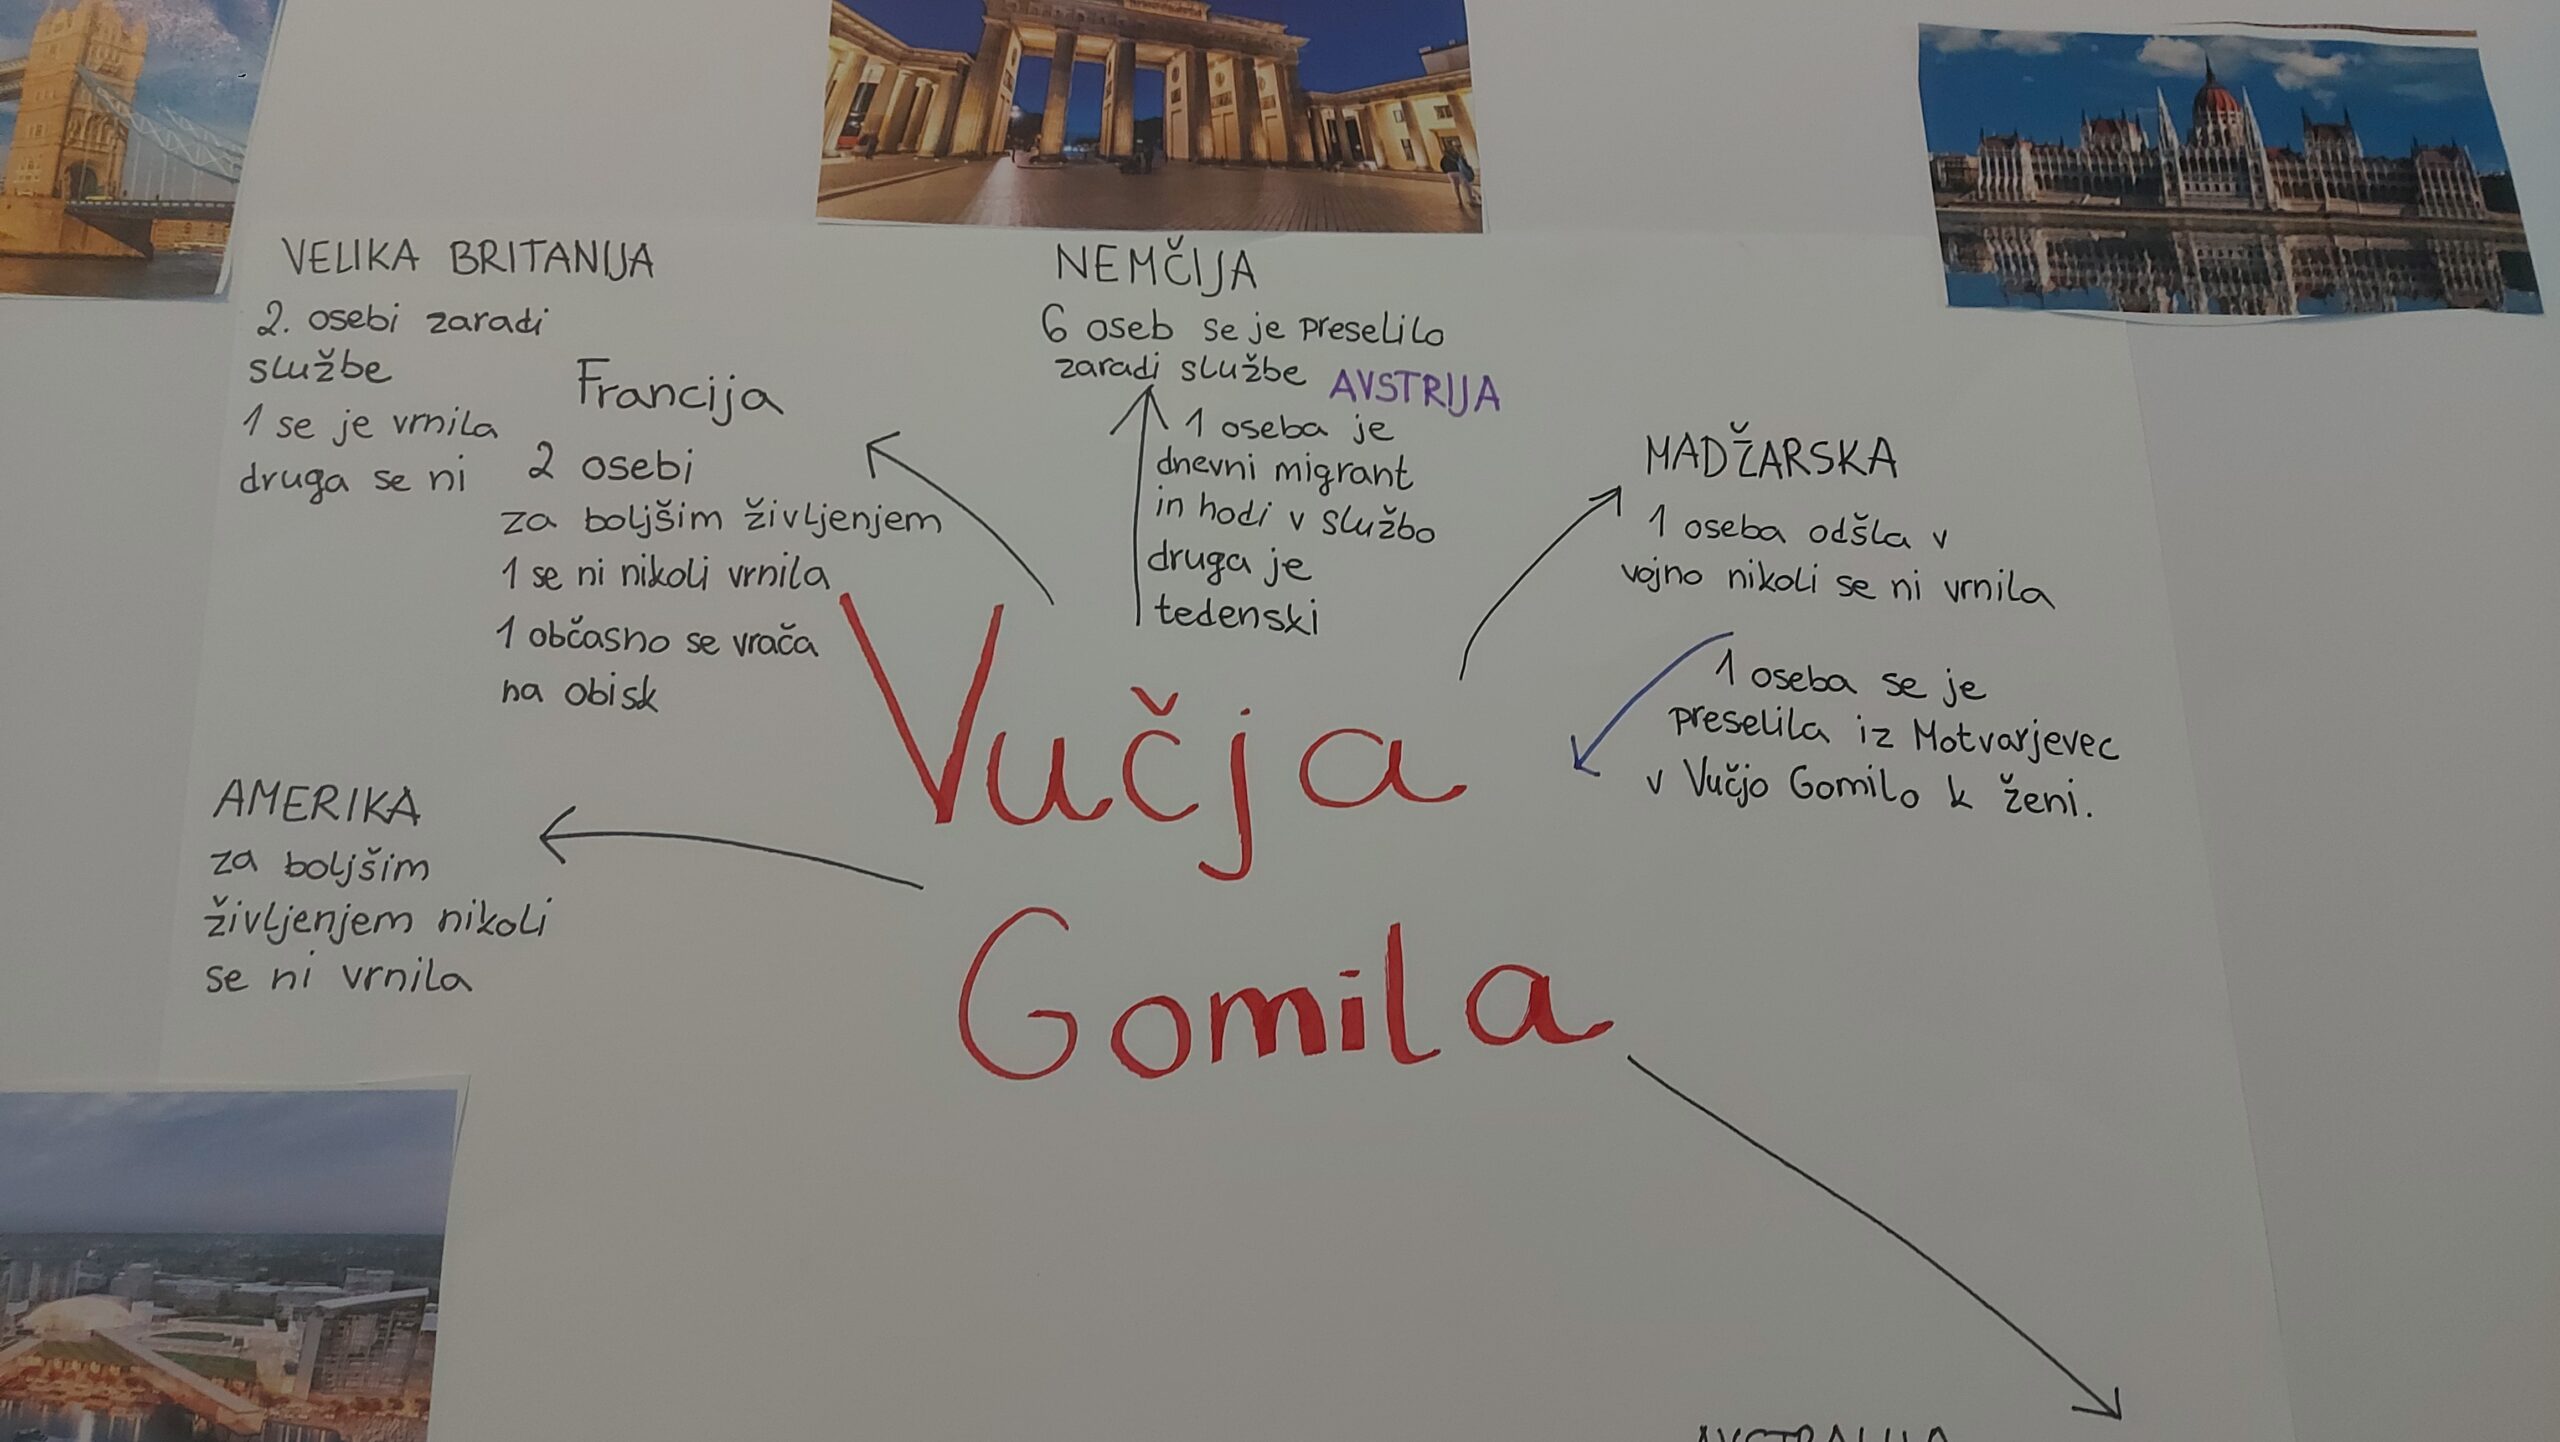 VELIKA BRITANIJA
2. osebi zaradi
službe
1 se je vrnila
druga se ni
Francija
2 osebi
za boljšim življenjem
1 se ni nikoli vrnila
1 občasno se vrača
na obisk
NEMČIJA
6 oseb se je preselilo
zaradi službe
AVSTRIJA
1 oseba je
dnevni migrant
in hodi v službo
druga je
tedenski
MADŽARSKA
1 oseba odšla v
vojno nikoli se ni vrnila
1 oseba se je
preselila iz Motvarjevec
v Vučjo Gomilo k ženi.
Vučja
Gomila
AMERIKA
za boljšim
življenjem nikoli
se ni vrnila
AVSTRALIJA